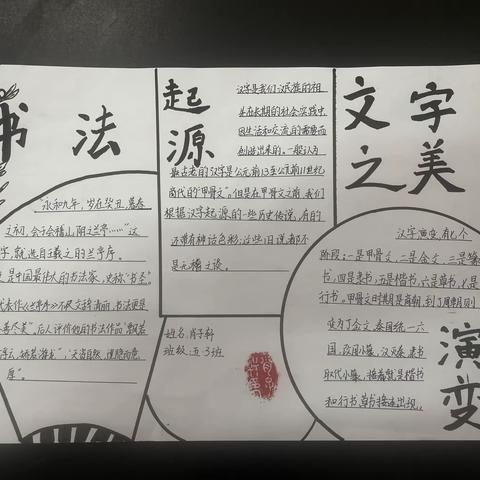 书法
"永和九年，岁在癸丑，暮春
之初，会于会稽山阴之兰亭……"这
字，就选自王羲之的兰亭序。
是中国最伟大的书法家，史称"书圣"。
代表作《兰亭序》不仅文辞清丽，书法更是
尽善尽美"。后人评价他的书法作品"飘若
浮云，矫若游龙"，"天质自然，
起源
汉字是我们汉民族的祖
先在长期的社会实践中
因生活和交流的需要而
创造出来的。一般认为
最古老的汉字是公元前13至公元前11世纪
商代的"甲骨文"。但是在甲骨文之前，我们
根据汉字起源的一些历史传说，有的
还带有神话色彩，这些旧说都不
是无稽之谈。
姓名：肖子轩
班级：五3班
文字之美
汉字演变有七个
阶段：一是甲骨文，二是金文，三是篆
书，四是隶书，五是楷书，六是草书，七是
行书。甲骨文时期是商朝，到了周朝则
变为了金文，秦国统一六
国，改用小篆，汉灭秦，隶书
取代小篆，接着就是楷书
和行书，草书接连出现。
演变